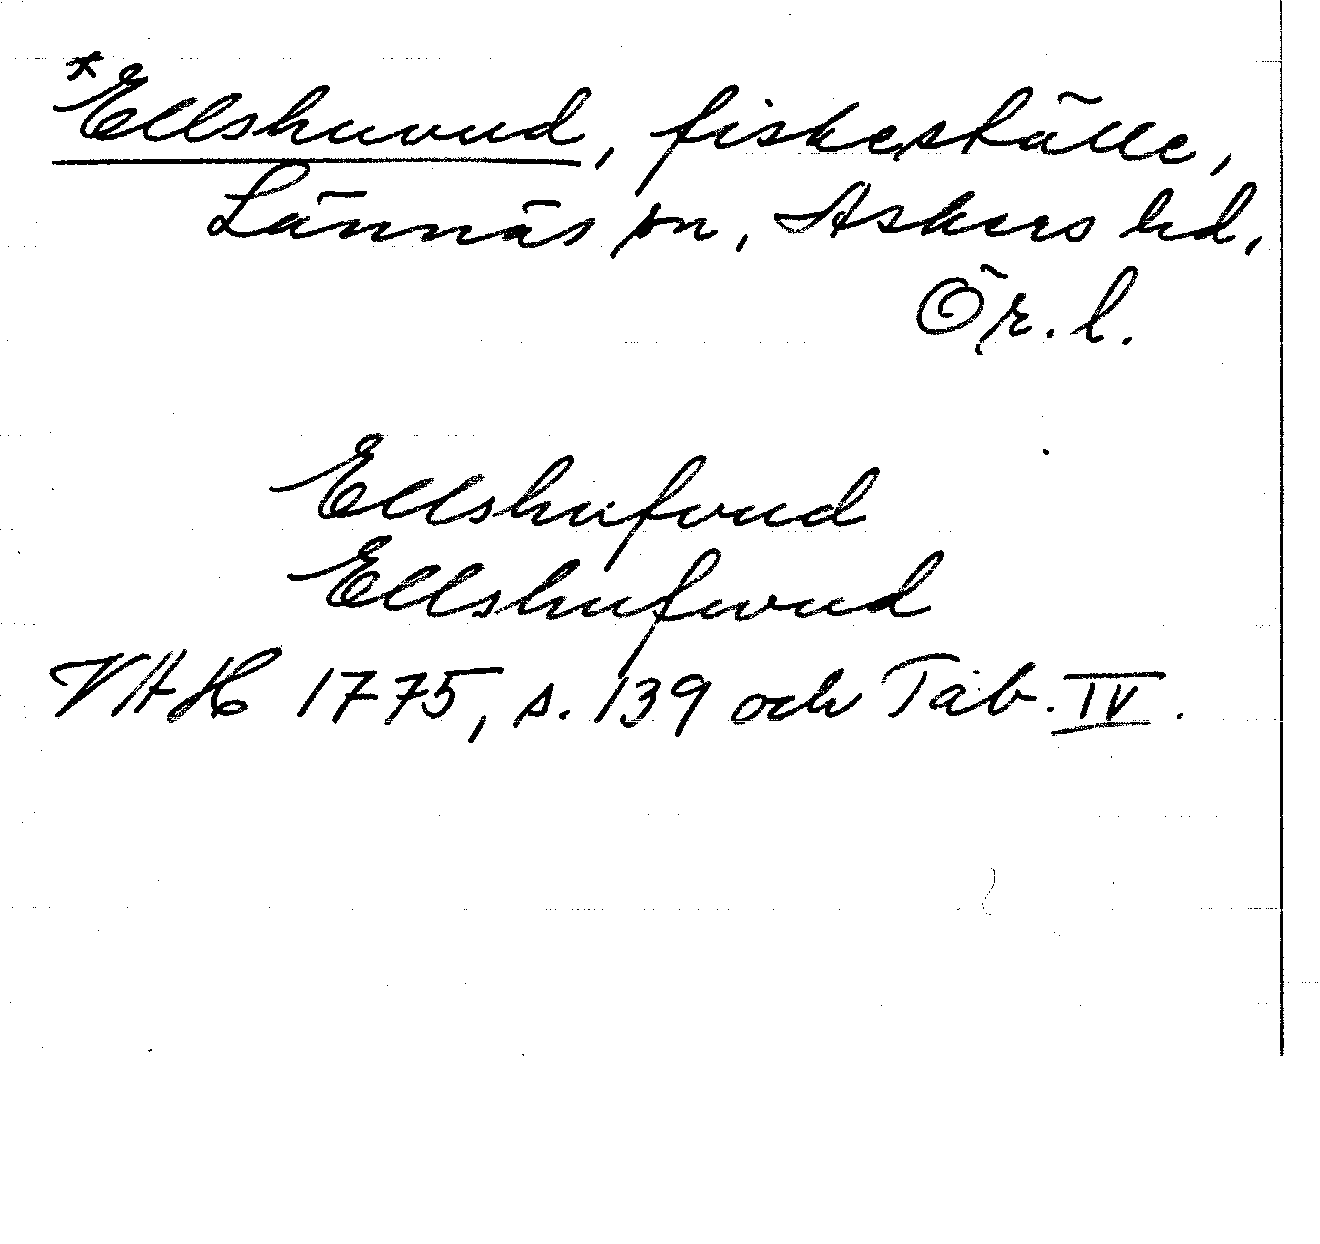 *Ellshuvud, fiskeställe,
Lännäs sn, Askers hd,
Ör. l.
Ellshufvud
Ellshufwud
VAH 1775, s. 139 och Tab. IV.